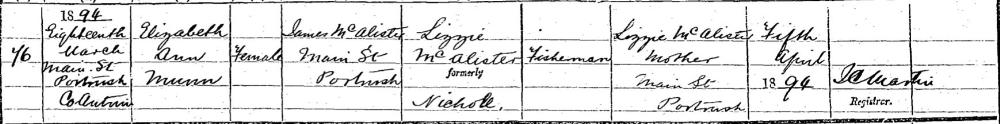 1894
Eighteenth Elizabeth James McAlister Lizzie Lizzie McAlister Fifth
76 March Ann Female Main St McAlister Fisherman Mother April
Main St Munn Portrush formerly Main St 1894 Registrar.
Portrush Nicholl. Portrush
Co Antrim